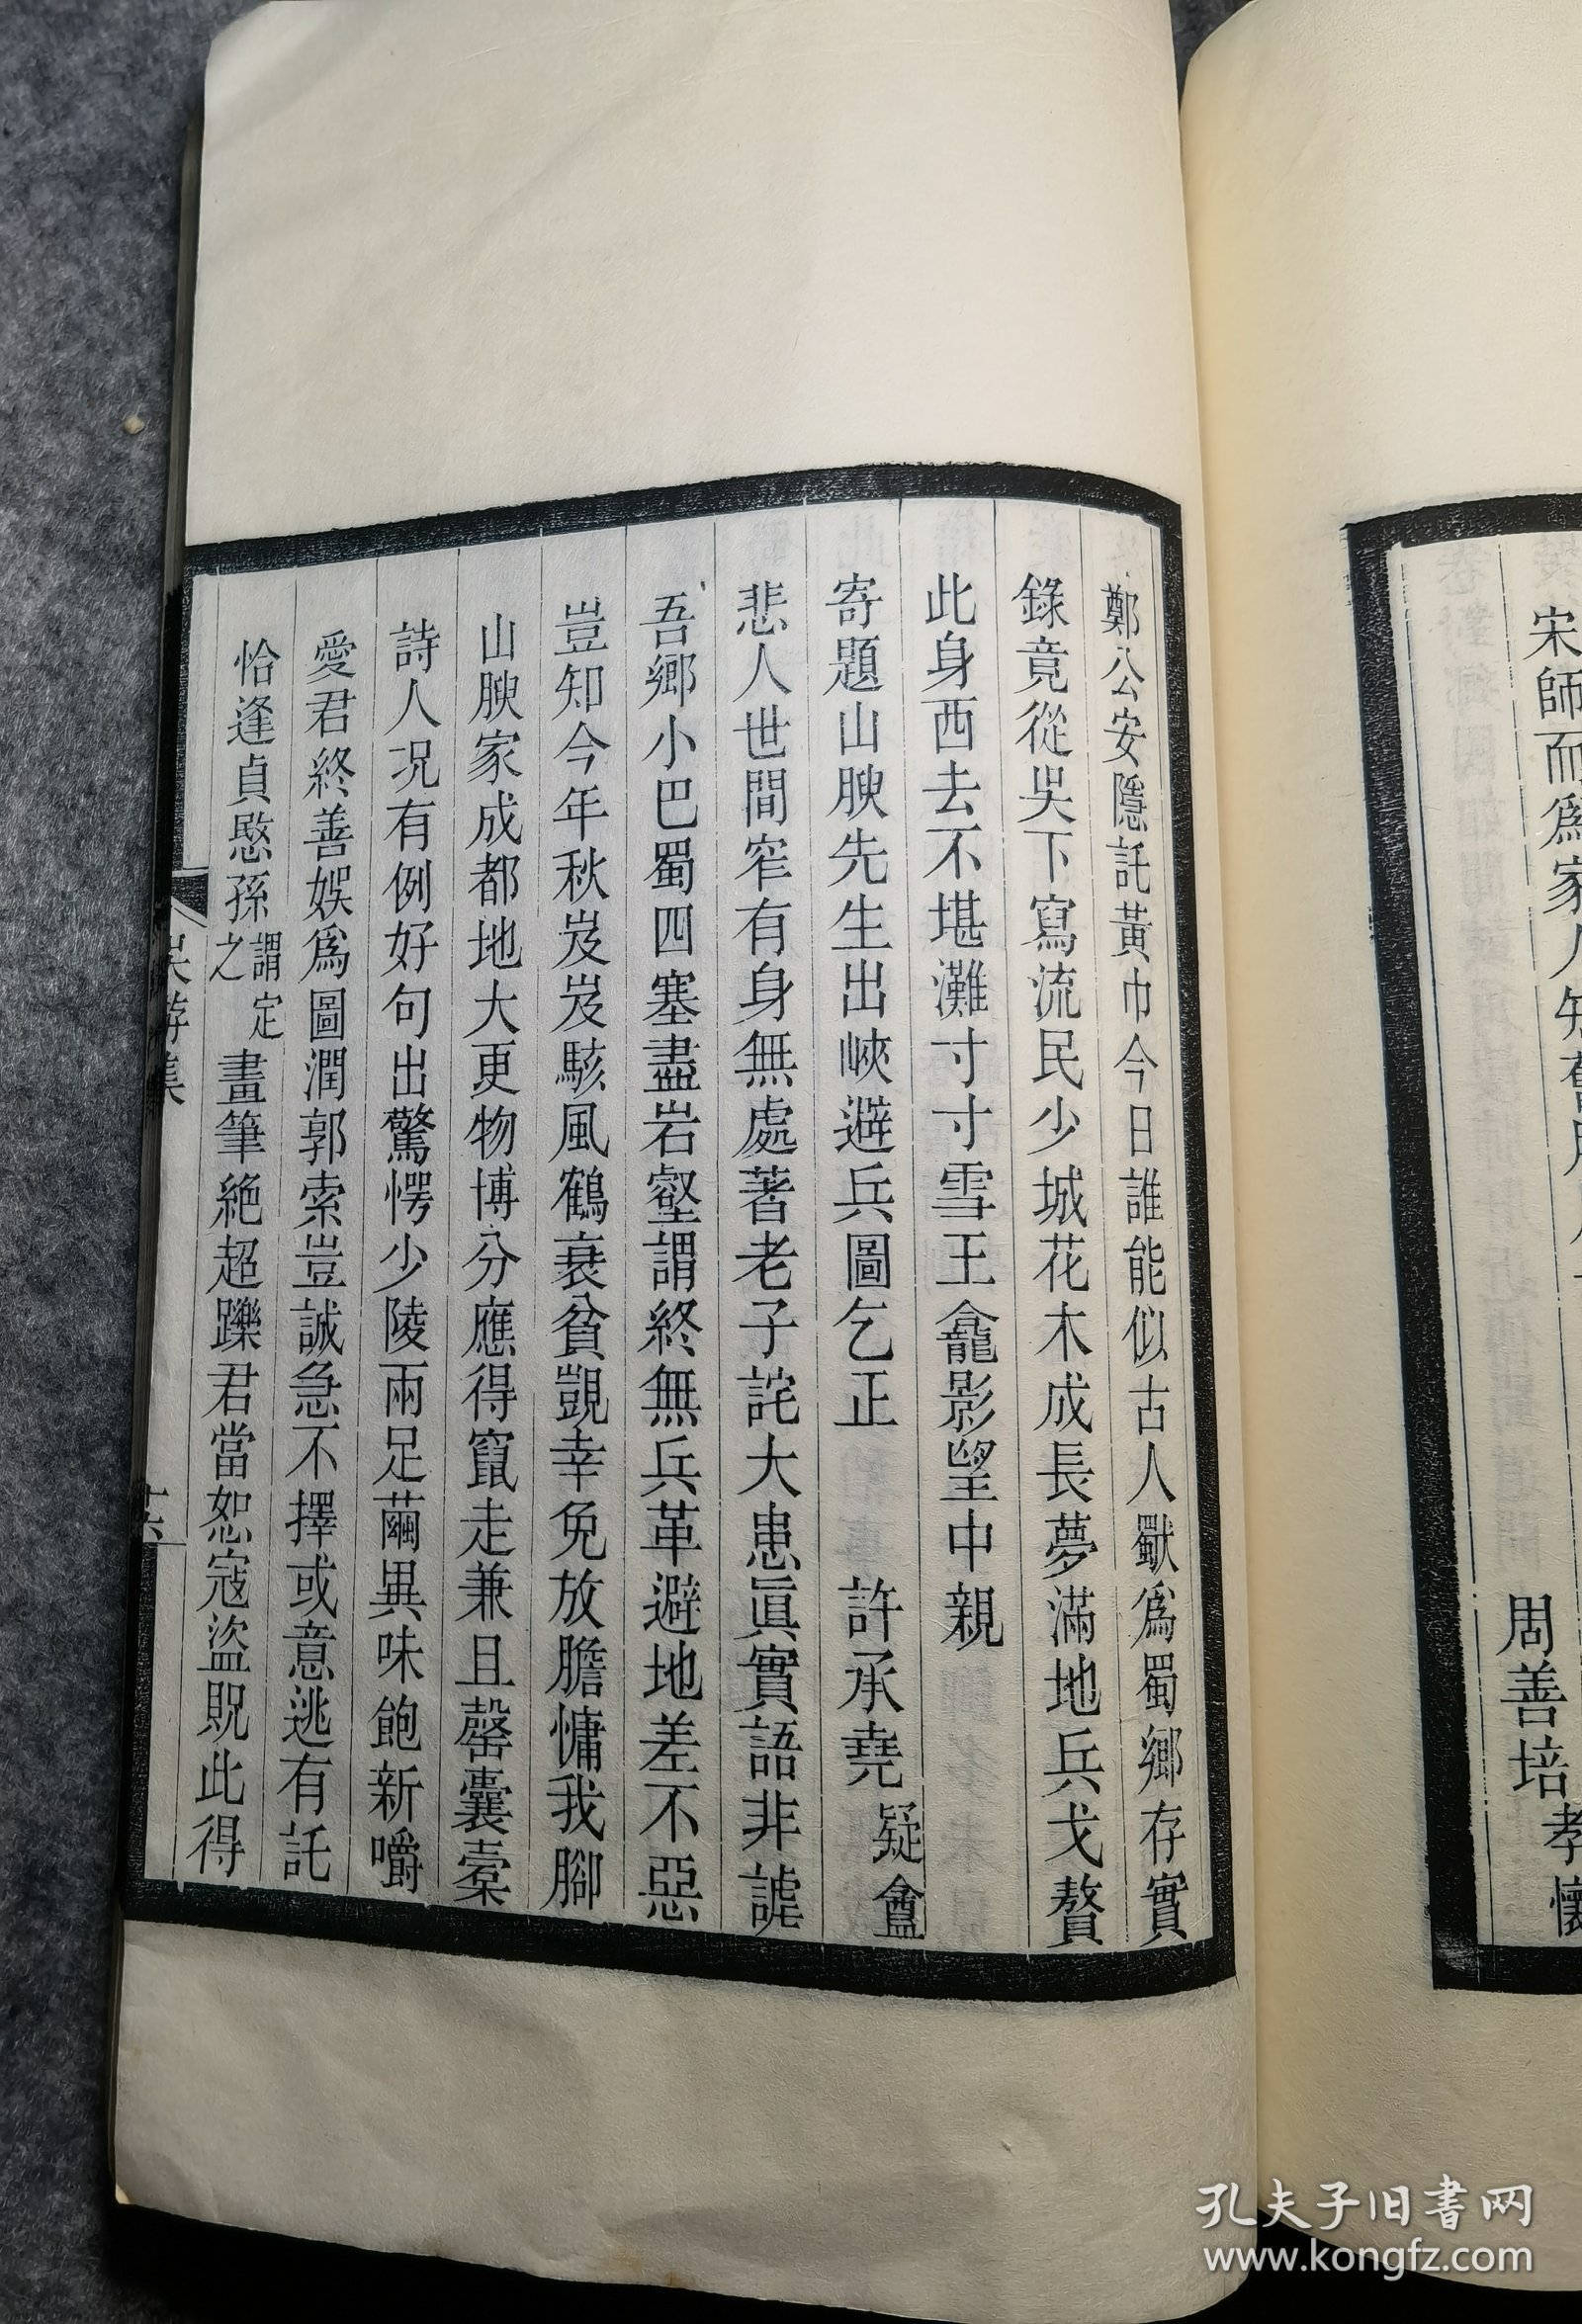 宋師而爲家人知舊
周善培
孝懷
鄭公安隱託黃巾今日誰能似古人獸爲蜀鄉存實
錄竟從吳下寫流民少城花木成長夢滿地兵戈贅
此身西去不堪灘寸寸雪王龕影望中親
寄題山腴先生出峽避兵圖乞正 許承堯 疑盦
悲人世間窄有身無處著老子詫大患眞實語非謔
吾鄉小巴蜀四塞盡岩壑謂終無兵革避地差不惡
豈知今年秋岌岌駭風鶴衰貧覬幸免放膽慵我腳
山腴家成都地大更物博分應得竄走兼且罄囊橐
詩人況有例好句出驚愕少陵兩足繭異味飽新嚼
愛君終善娛爲圖潤郭索豈誠急不擇或意逃有託
恰逢貞愍孫謂定之畫筆絶超躒君當恕寇盜貺此得
吳游集
十六
孔夫子旧书网
www.kongfz.com